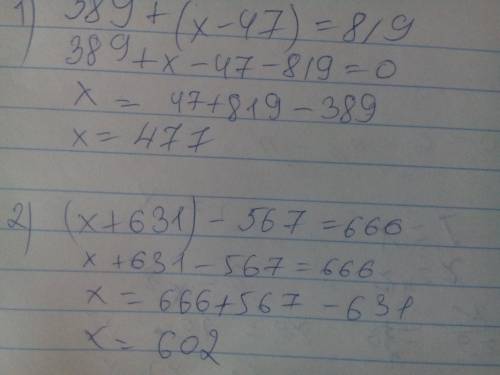 1) 389 + (x - 47) = 819
389 + x - 47 - 819 = 0
x = 47 + 819 - 389
x = 477
2) (x + 631) - 567 = 666
x + 631 - 567 = 666
x = 666 + 567 - 631
x = 602